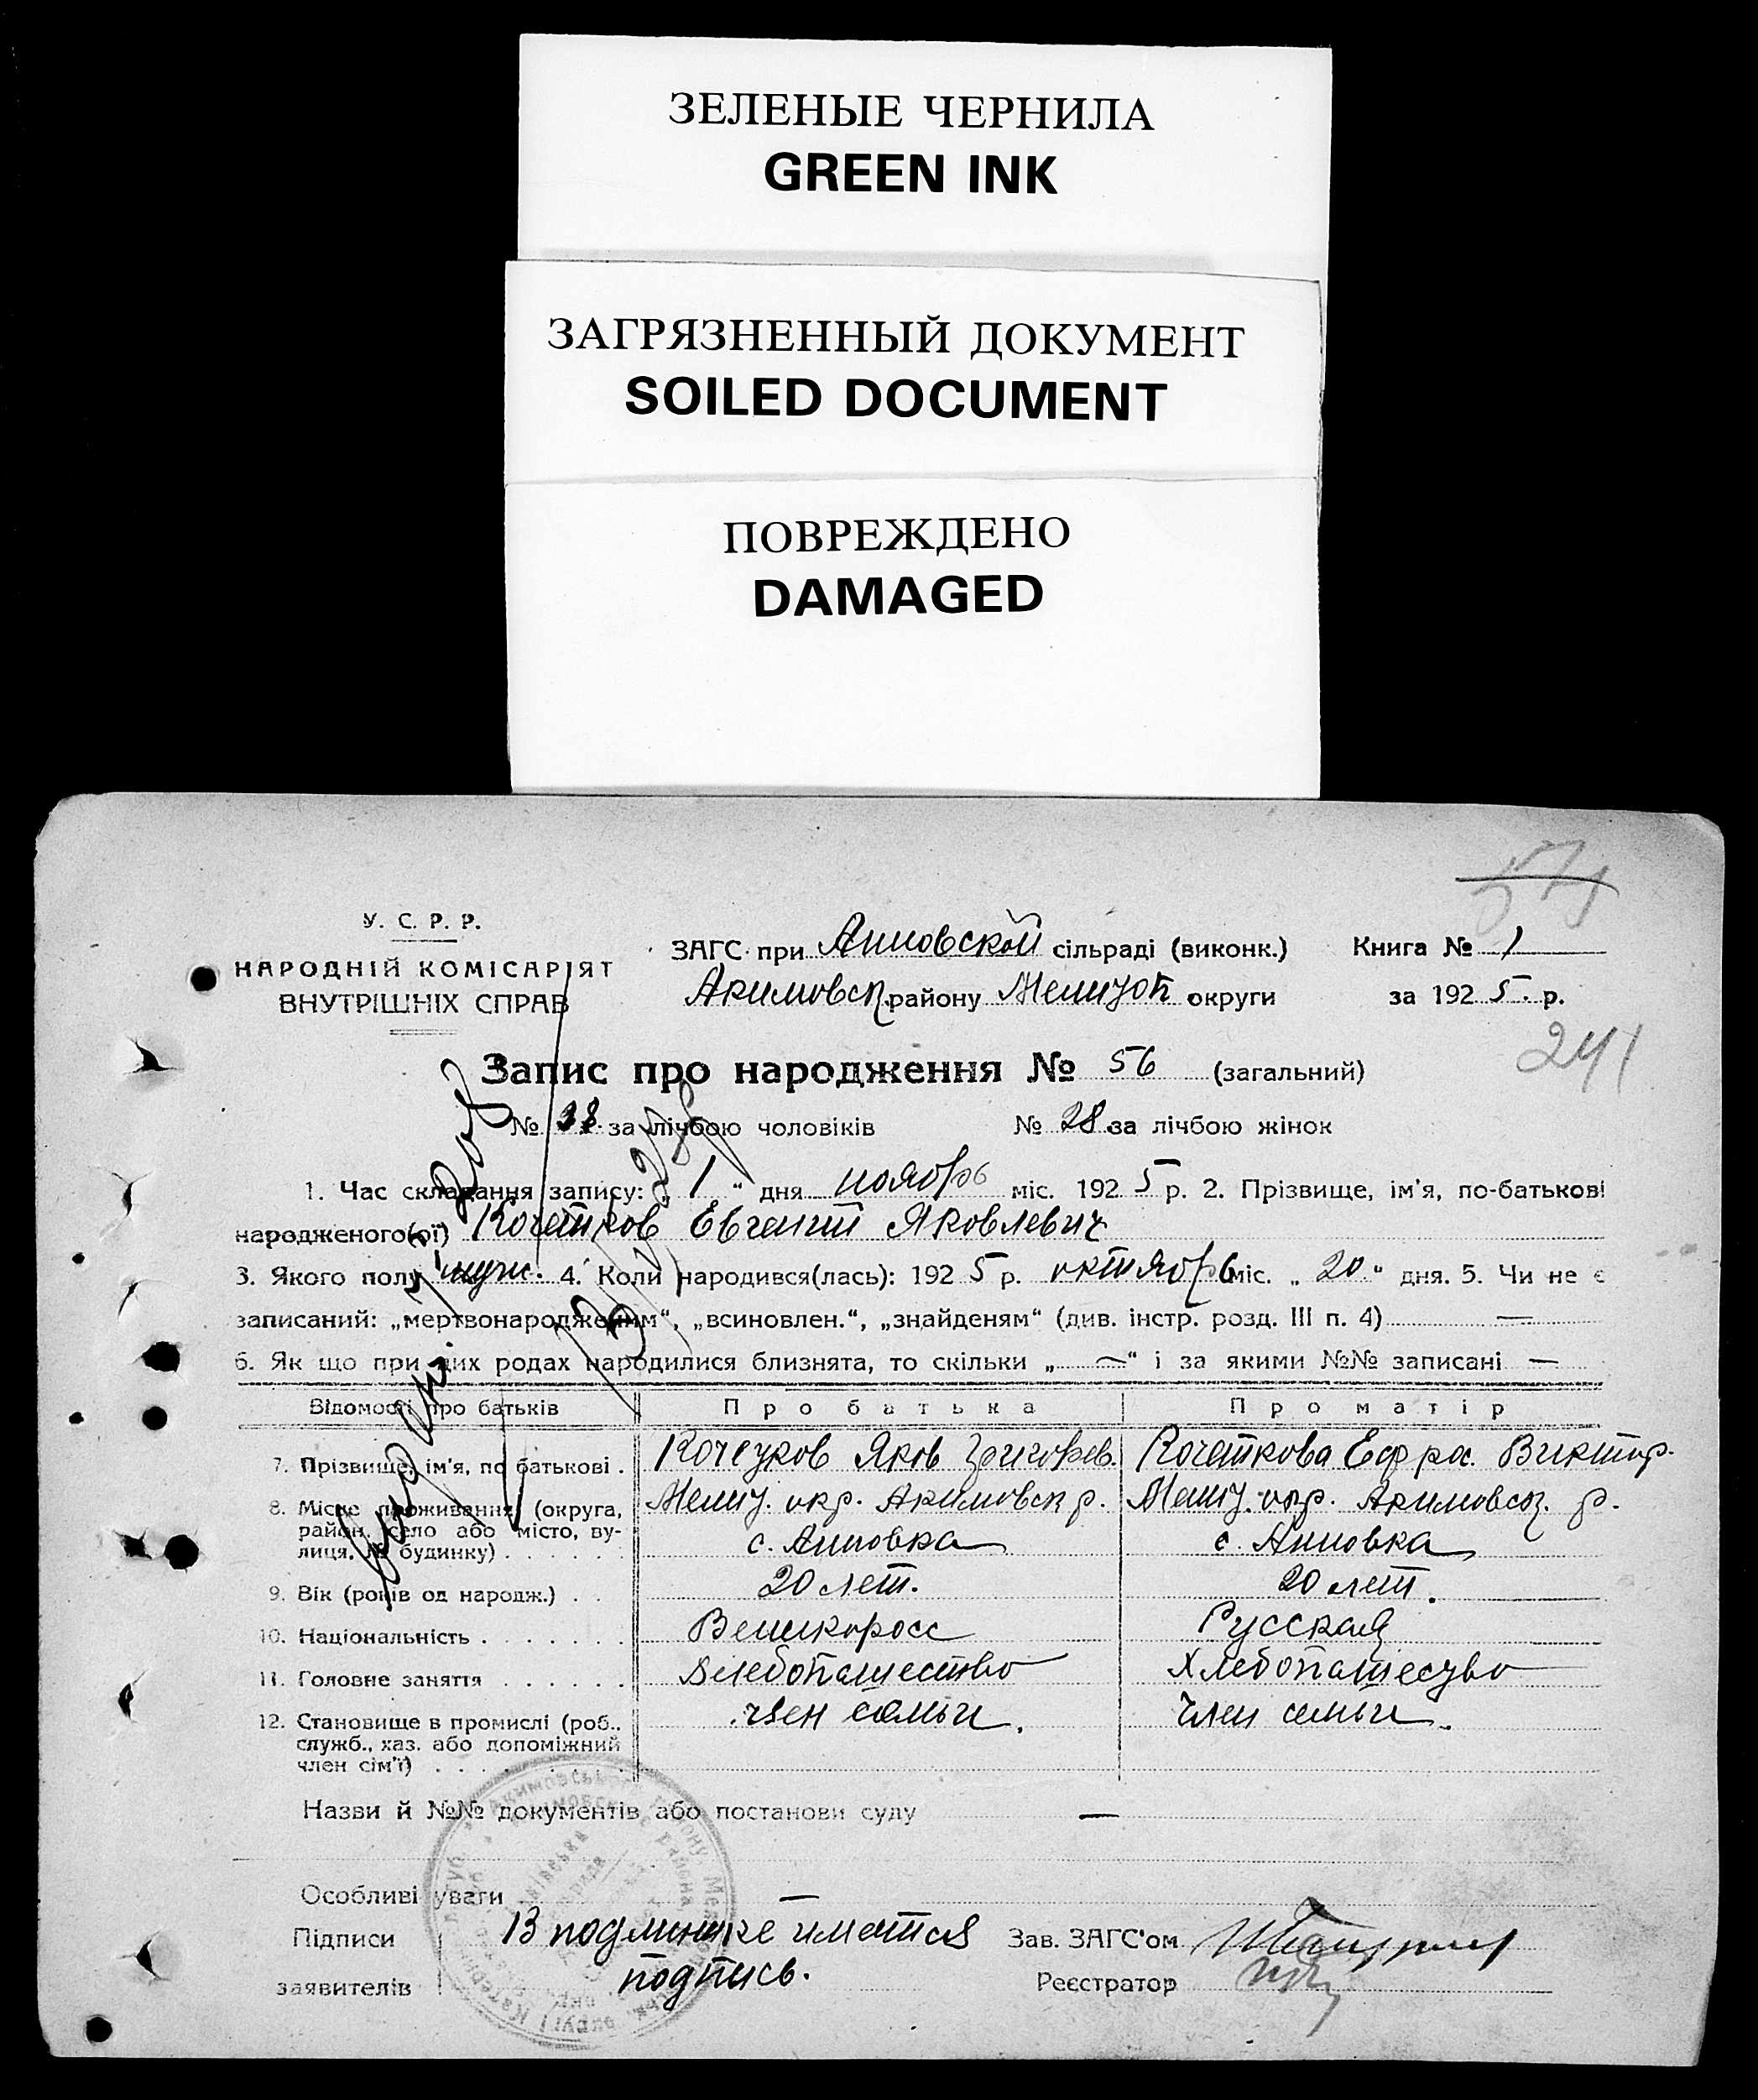 ЗЕЛЕНЫЕ ЧЕРНИЛА
GREEN INK
ЗАГРЯЗНЕННЫЙ ДОКУМЕНТ
SOILED DOCUMENT
ПОВРЕЖДЕНО
DAMAGED
У. С. Р. Р.
НАРОДНІЙ КОМІСАРІЯТ
ВНУТРІШНІХ СПРАВ
ЗАГС при Анновской сільраді (виконк.) Книга № 1
Акимовск. району Мелитоп округи за 1925. р.
241
Запис про народження № 56 (загальний)
№ 28. за лічбою чоловіків № 28 за лічбою жінок
1. Час складання запису: „1“ дня ноябрь міс. 1925 р. 2. Прізвище, ім'я, по-батькові
народженого(ої) Кочетков Евгений Яковлевич
3. Якого полу муж. 4. Коли народився(лась): 1925 р. октябрь міс. „20“ дня. 5. Чи не є
записаний: „мертвонародженим“, „всиновлен.“, „знайденям“ (див. інстр. розд. III п. 4) —
6. Як що при цих родах народилися близнята, то скільки „—“ і за якими №№ записані —
Відомості про батьків Про батька Про матір
7. Прізвище, ім'я, по батькові . Кочетков Яков Григорьев. Кочеткова Ефрос. Виктор.
8. Місце проживання (округа, район, село або місто, вулиця, № будинку) . . . . . . Мелит. окр. Акимовск р. Мелит. окр. Акимовск. р.
с. Анновка с. Анновка
9. Вік (років од народж.) . . 20 лет. 20 лет.
10. Національність . . . . . . . Великоросс Русская
11. Головне заняття . . . . . . Хлебопашество Хлебопашество
12. Становище в промислі (роб., член семьи. член семьи.
служб., хаз. або допоміжний
член сім'ї) . . . .
Назви й №№ документів або постанови суду —
Особливі уваги —
Підписи В подлинике имеется Зав. ЗАГС'ом
заявителів подпись. Реєстратор